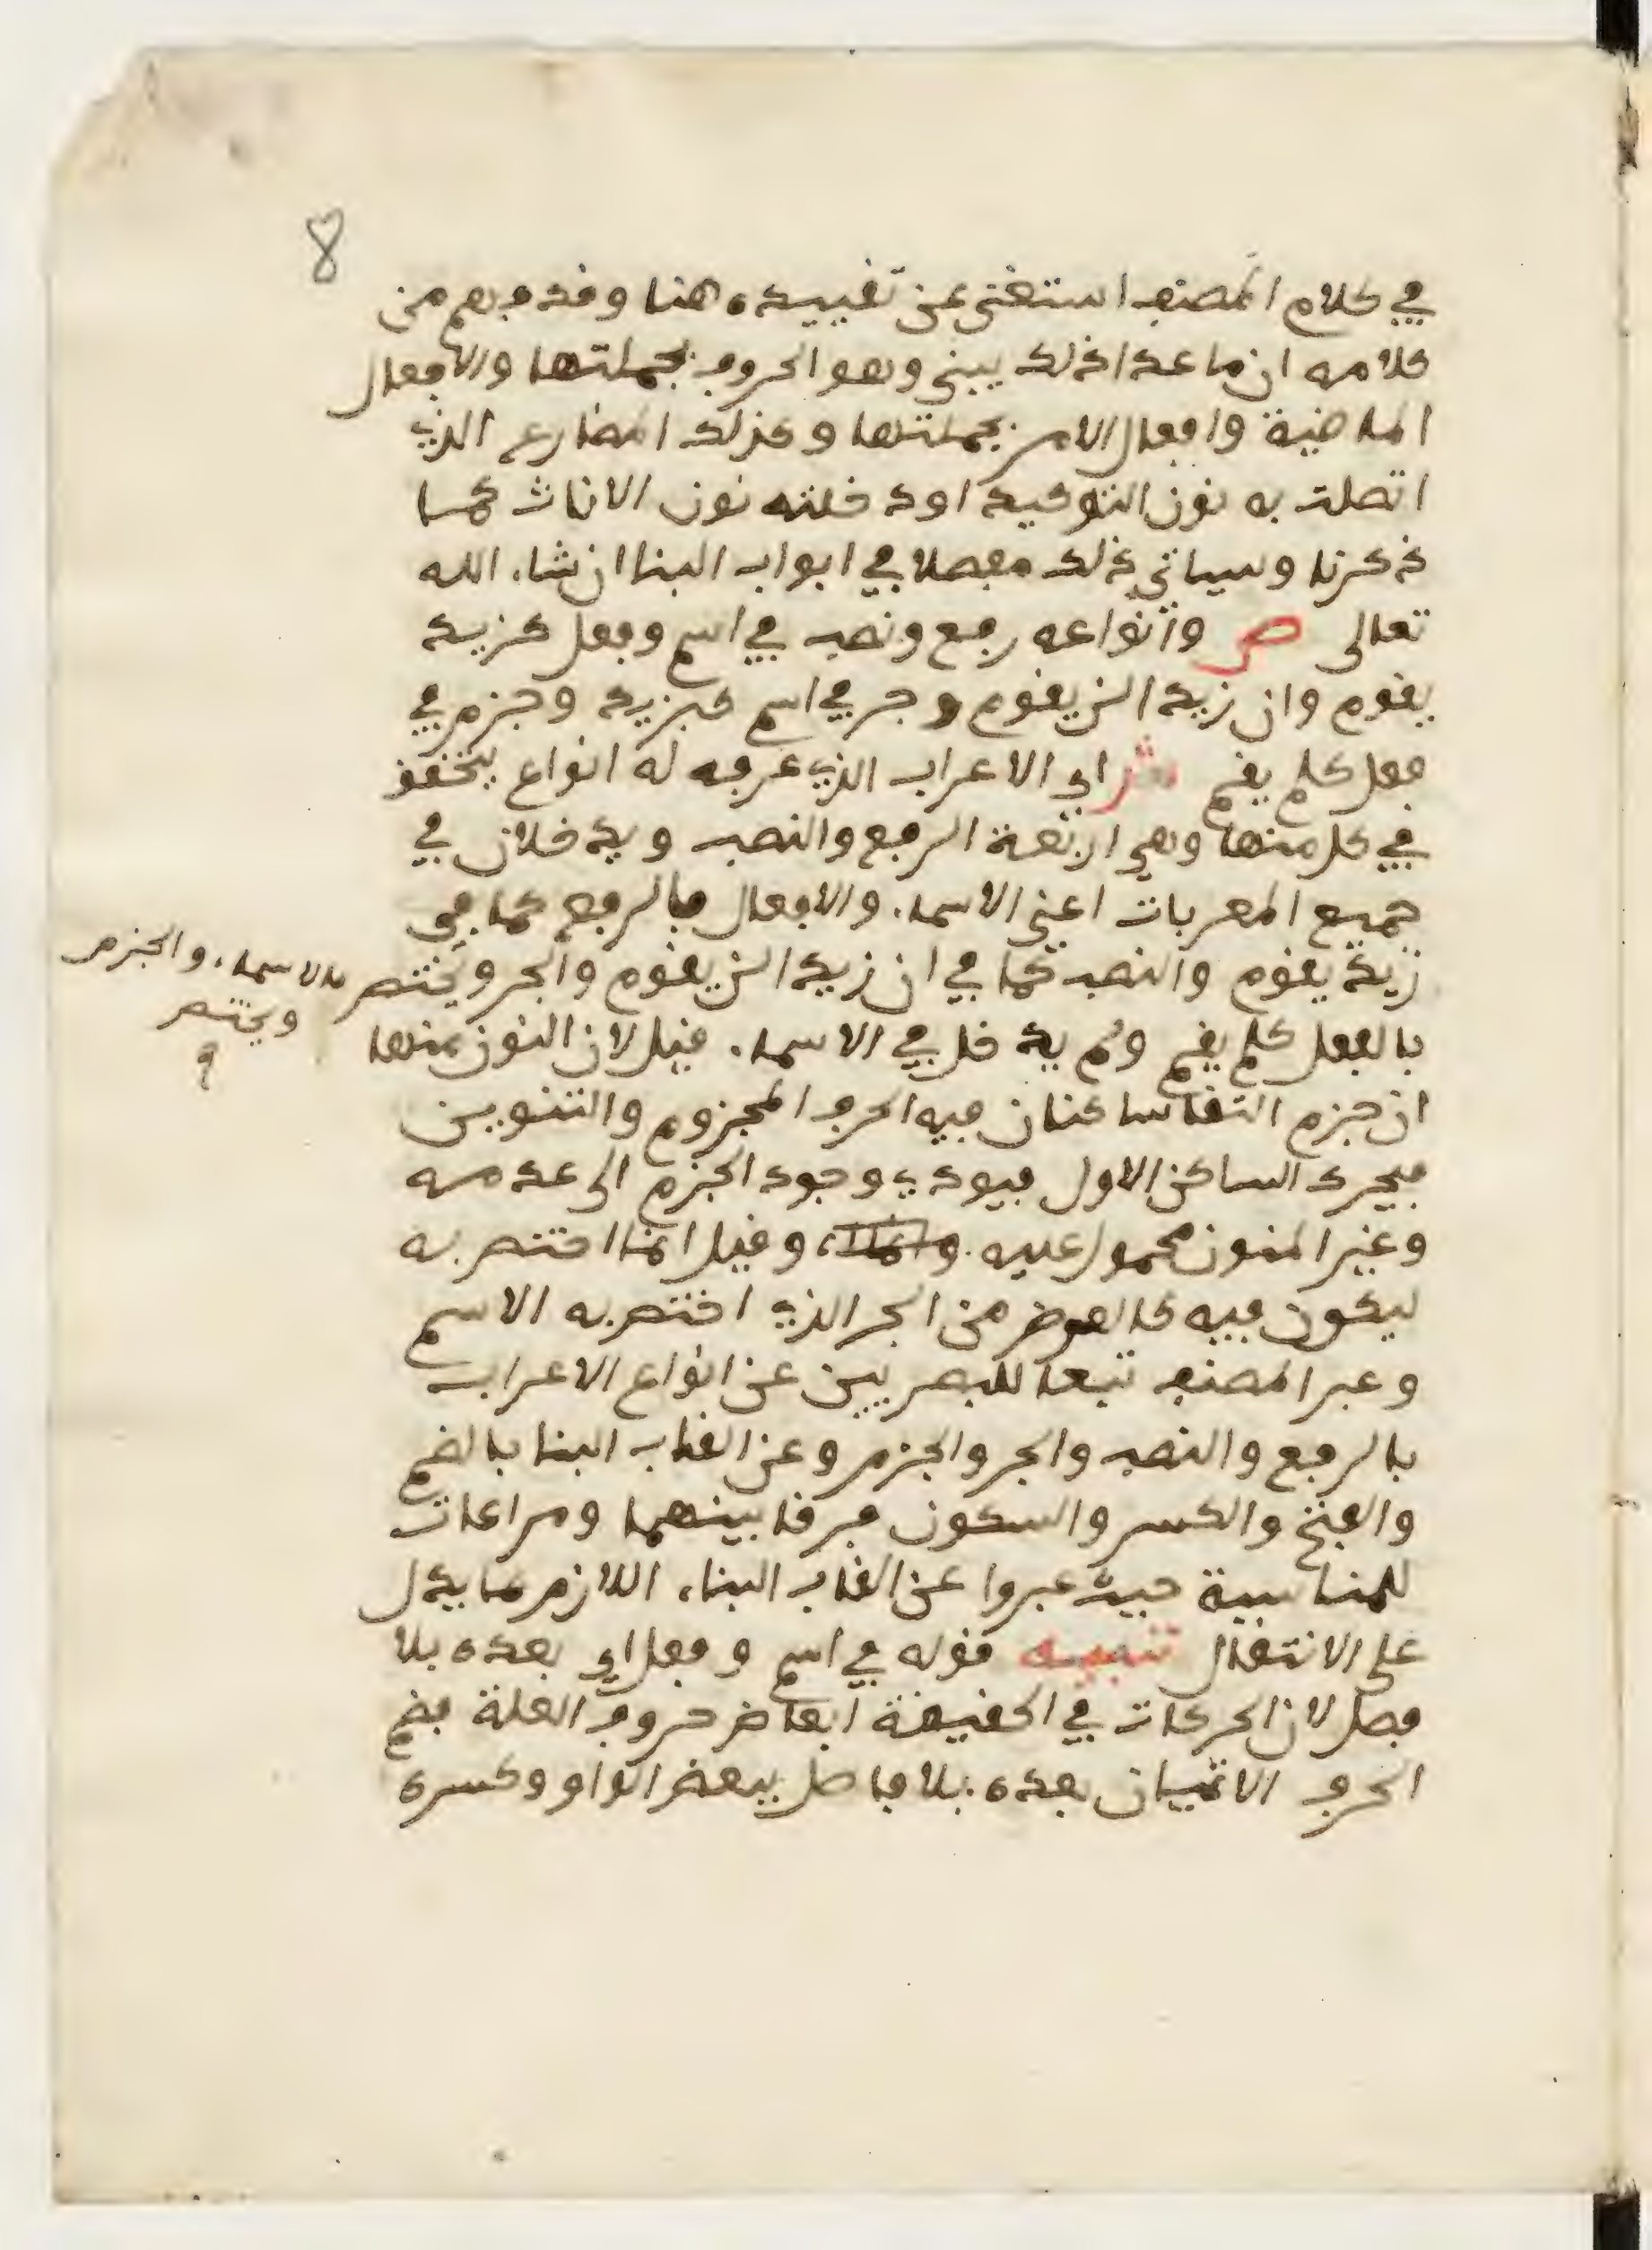 8
في كلام المصنف استغنى عن تقييده هنا وقد فهم من
كلامه ان ما عدا ذلك يبنى وهو الحروف بجملتها والافعال
الماضية وافعال الامر بجملتها وكذلك المضارع الذي
اتصلت به نون التوكيد او دخلته نون الاناث كما
ذكرنا وسياتي ذلك مفصلا في ابواب البنا ان شاء الله
تعالى ص وانواعه رفع ونصب في اسم وفعل كزيد
يقوم وان زيدا لن يقوم وجر في اسم كبزيد وجزم في
فعل كلم يقم ش اي الاعراب الذي عرفه له انواع يتحقق
في كل منها وهي اربعة الرفع والنصب ويدخلان في
جميع المعربات اعني الاسماء والافعال فالرفع كما في
زيد يقوم والنصب كما في ان زيدا لن يقوم والجر ويختص بالاسماء، والجزم
ويختص
بالفعل كلم يقم ولم يدخل في الاسماء. قيل لان النون منها
ان جزم التقا ساكنان فيه الحرف المجزوم والتنوين
فيحرك الساكن الاول فيودي وجود الجزم الى عدمه
وغير المنون محمول عليه. وقيل انما اختص به
ليكون فيه كالعوض من الجر الذي اختص به الاسم
وعبر المصنف تبعا للبصريين عن انواع الاعراب
بالرفع والنصب والجر والجزم وعن القاب البنا بالضم
والفتح والكسر والسكون فرقا بينهما ومراعات
للمناسبة حيث عبروا عن القاب البناء اللازم ما يدل
على الانتقال تنبيه قوله في اسم وفعل اي بعده بلا
فصل لان الحركات في الحقيقة ابعاض حروف العلة فضم
الحرف الاتيان بعده بلا فاصل ببعض الواو وكسره